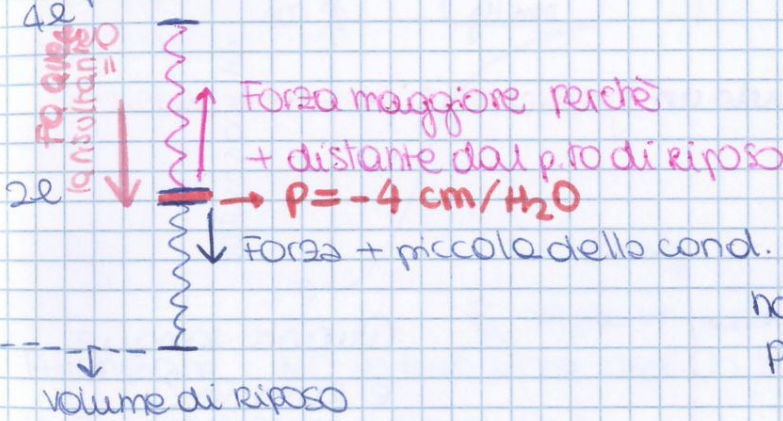 4l
FO avere
ransultante
= 0
Forza maggiore perchè
+ distante dal p.to di riposo
2l
→ P = -4 cm/H₂O
Forza + piccola della cond.
volume di riposo